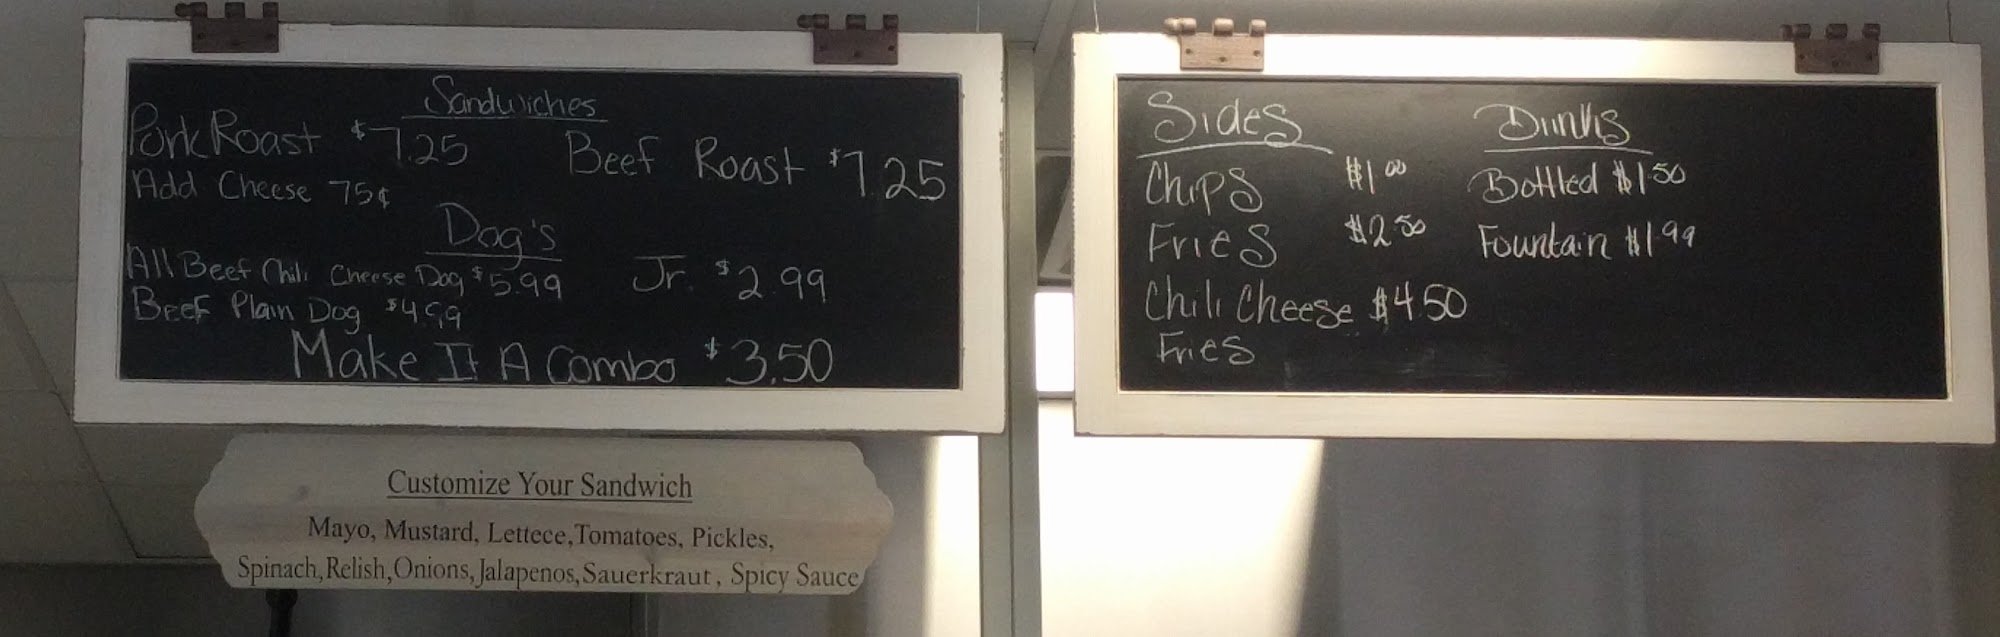 Sandwiches
Pork Roast $7.25 Beef Roast $7.25
Add Cheese 75¢
Dog's
All Beef Chili Cheese Dog $5.99 Jr. $2.99
Beef Plain Dog $4.99
Make It A Combo $3.50
Customize Your Sandwich
Mayo, Mustard, Lettece, Tomatoes, Pickles,
Spinach, Relish, Onions, Jalapenos, Sauerkraut, Spicy Sauce
Sides
Chips $1.00
Fries $2.50
Chili Cheese $4.50
Fries
Drinks
Bottled $1.50
Fountain $1.99